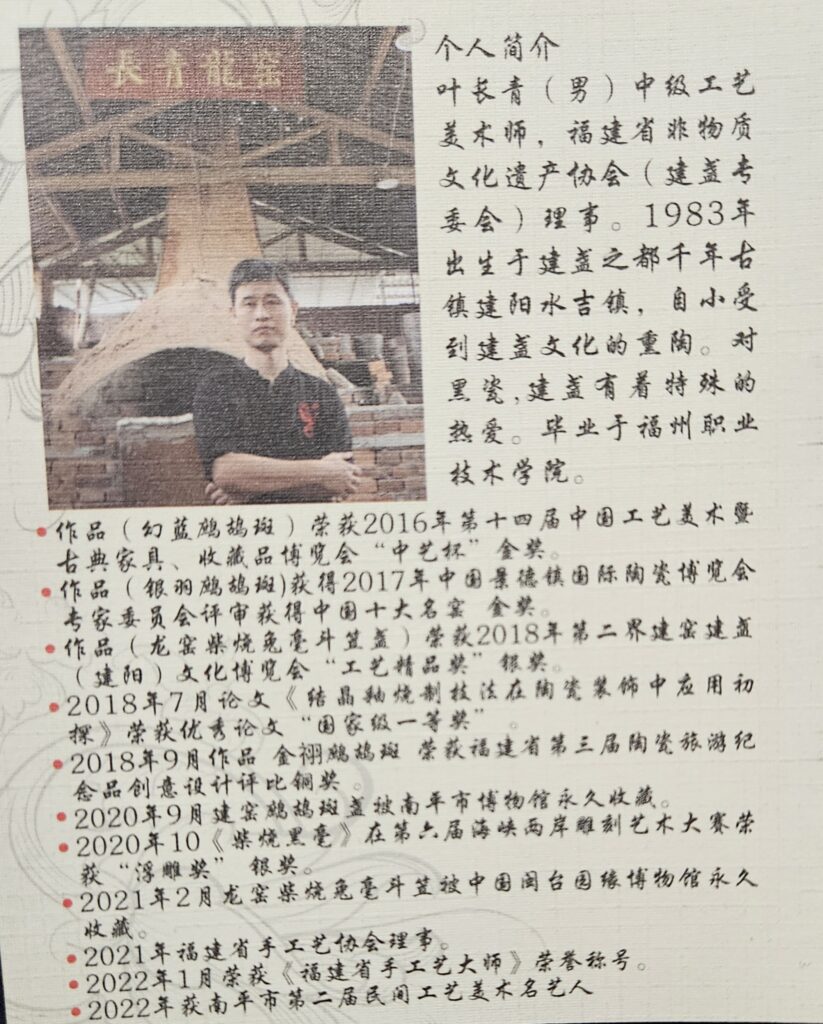 長青龍窑
个人简介
叶长青（男）中级工艺
美术师，福建省非物质
文化遗产协会（建盏专
委会）理事。1983年
出生于建盏之都千年古
镇建阳水吉镇，自小受
到建盏文化的熏陶。对
黑瓷，建盏有着特殊的
热爱。毕业于福州职业
技术学院。
作品（幻蓝鹧鸪斑）荣获2016年第十四届中国工艺美术暨
古典家具、收藏品博览会“中艺杯”金奖。
作品（银羽鹧鸪斑)获得2017年中国景德镇国际陶瓷博览会
专家委员会评审获得中国十大名窑 金奖。
作品（龙窑柴烧兔毫斗笠盏）荣获2018年第二界建窑建盏
（建阳）文化博览会“工艺精品奖”银奖。
2018年7月论文《结晶釉烧制技法在陶瓷装饰中应用初
探》荣获优秀论文“国家级一等奖”。
2018年9月作品 金翎鹧鸪斑 荣获福建省第三届陶瓷旅游纪
念品创意设计评比铜奖。
2020年9月建窑鹧鸪斑盏被南平市博物馆永久收藏。
2020年10《柴烧黑毫》在第六届海峡两岸雕刻艺术大赛荣
获“浮雕奖”银奖。
2021年2月龙窑柴烧兔毫斗笠被中国闽台园缘博物馆永久
收藏。
2021年福建省手工艺协会理事。
2022年1月荣获《福建省手工艺大师》荣誉称号。
2022年获南平市第二届民间工艺美术名艺人